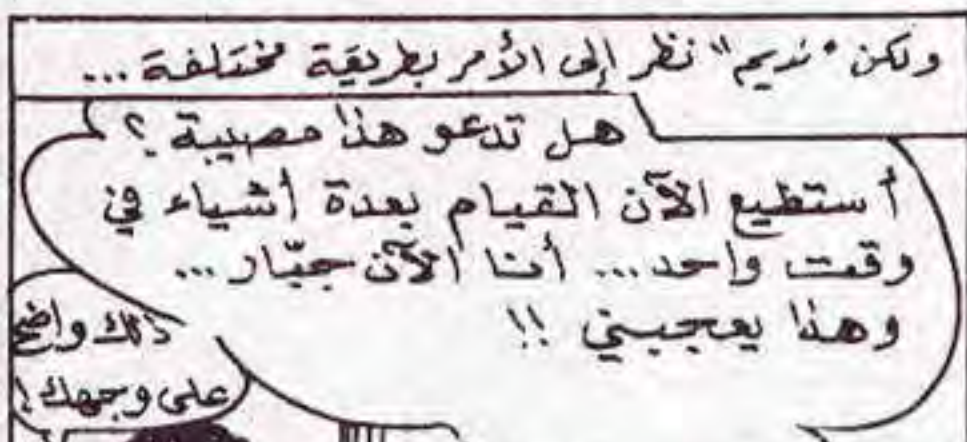 ولكن "نديم" نظر إلى الأمر بطريقة مختلفة...
هل تدعو هذا مصيبة ؟
أستطيع الآن القيام بعدة أشياء في
وقت واحد... أنا الآن جبّار...
وهذا يعجبني !!
ذلك واضح
على وجهك !